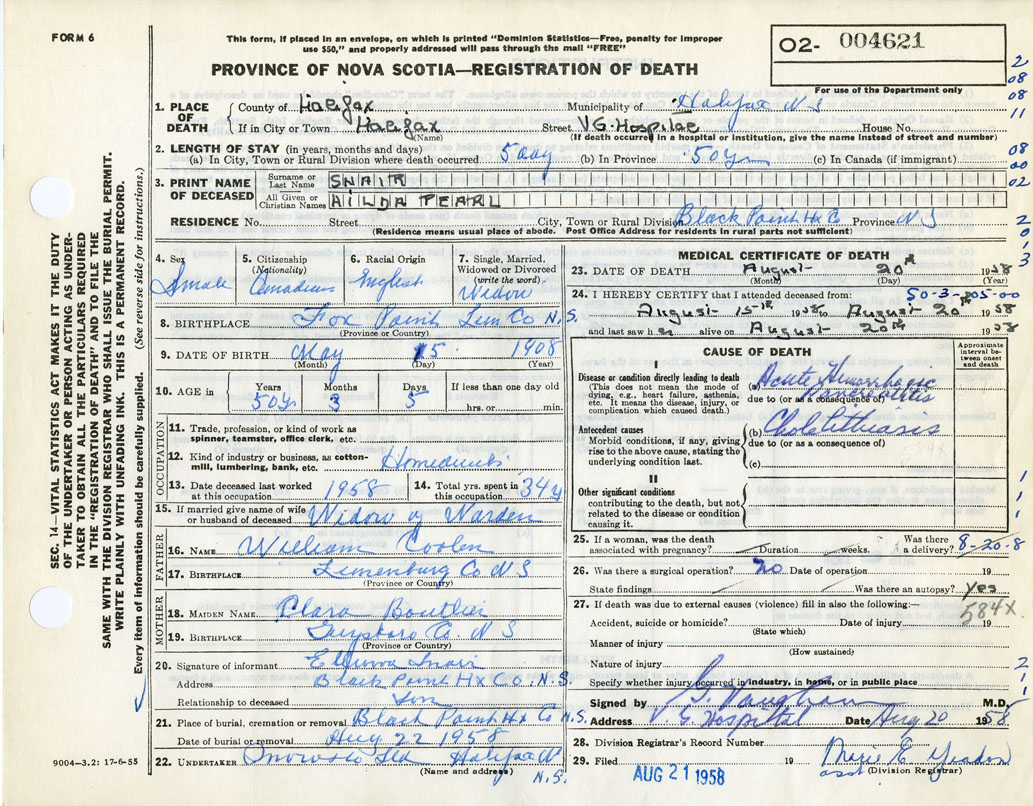 FORM 6
This form, if placed in an envelope, on which is printed "Dominion Statistics—Free, penalty for improper
use $50," and properly addressed will pass through the mail "FREE"
O2- 004621
For use of the Department only
PROVINCE OF NOVA SCOTIA—REGISTRATION OF DEATH
1. PLACE OF DEATH { County of Halifax Municipality of Halifax N S
If in City or Town Halifax Street V G Hospital House No.
(Name) (If death occurred in a hospital or institution, give the name instead of street and number)
2. LENGTH OF STAY (in years, months and days)
(a) In City, Town or Rural Division where death occurred 5 day (b) In Province 50 Yrs (c) In Canada (if immigrant)
3. PRINT NAME OF DECEASED { Surname or Last Name SNAIR
All Given or Christian Names HILDA PEARL
RESIDENCE No. Street City, Town or Rural Division Black Point Hx Co Province N S
(Residence means usual place of abode. Post Office Address for residents in rural parts not sufficient)
4. Sex
5. Citizenship (Nationality) Canadian
6. Racial Origin English
7. Single, Married, Widowed or Divorced (write the word) Widow
8. BIRTHPLACE Fox Point Lun Co N.S.
(Province or Country)
9. DATE OF BIRTH May 15 1908
(Month) (Day) (Year)
10. AGE in { Years Months Days If less than one day old
50 Yrs 3 5 hrs. or min.
OCCUPATION
11. Trade, profession, or kind of work as spinner, teamster, office clerk, etc.
12. Kind of industry or business, as cotton-mill, lumbering, bank, etc.
13. Date deceased last worked at this occupation 1958
14. Total yrs. spent in this occupation 34 y
15. If married give name of wife or husband of deceased Widow of Warden
FATHER
16. NAME William Coolen
17. BIRTHPLACE Lunenburg Co N S
(Province or Country)
MOTHER
18. MAIDEN NAME Clara Boutlier
19. BIRTHPLACE Guysboro Co. N S
(Province or Country)
20. Signature of informant Snair
Address Black Point Hx Co, N.S.
Relationship to deceased Son
21. Place of burial, cremation or removal Black Point Hx Co N.S.
Date of burial or removal Aug 22 1958
22. UNDERTAKER Snow Halifax
(Name and address) N.S.
9004-3.2: 17-6-55
MEDICAL CERTIFICATE OF DEATH
23. DATE OF DEATH August 20th 1958
(Month) (Day) (Year)
24. I HEREBY CERTIFY that I attended deceased from: 50-3-05-00
August 15th 1958 to August 20th 1958
and last saw her alive on August 20th 1958
CAUSE OF DEATH
Approximate interval between onset and death
I
Disease or condition directly leading to death
(This does not mean the mode of dying, e.g., heart failure, asthenia, etc. It means the disease, injury, or complication which caused death.)
(a) Acute Hemorrhagic Pancreatitis
due to (or as a consequence of)
Antecedent causes
Morbid conditions, if any, giving rise to the above cause, stating the underlying condition last.
(b) Cholelithiasis
due to (or as a consequence of)
584X
(c)
II
Other significant conditions
contributing to the death, but not related to the disease or condition causing it.
25. If a woman, was the death associated with pregnancy? Duration weeks. Was there a delivery? 8-20-8
26. Was there a surgical operation? no Date of operation 19
State findings Was there an autopsy? Yes
27. If death was due to external causes (violence) fill in also the following:—
584X
Accident, suicide or homicide? Date of injury 19
(State which)
Manner of injury
(How sustained)
Nature of injury
Specify whether injury occurred in industry, in home, or in public place
Signed by G. Vaughan M.D.
Address V. G. Hospital Date Aug 20 1958
28. Division Registrar's Record Number
29. Filed AUG 21 1958 19 Marie E. Yeadon
asst (Division Registrar)
SEC. 14—VITAL STATISTICS ACT MAKES IT THE DUTY
OF THE UNDERTAKER OR PERSON ACTING AS UNDER-
TAKER TO OBTAIN ALL THE PARTICULARS REQUIRED
IN THE "REGISTRATION OF DEATH" AND TO FILE THE
SAME WITH THE DIVISION REGISTRAR WHO SHALL ISSUE THE BURIAL PERMIT.
WRITE PLAINLY WITH UNFADING INK. THIS IS A PERMANENT RECORD.
Every item of information should be carefully supplied. (See reverse side for instructions.)
2
08
08
11
08
00
02
2
0
3
1
1
1
2
1
1